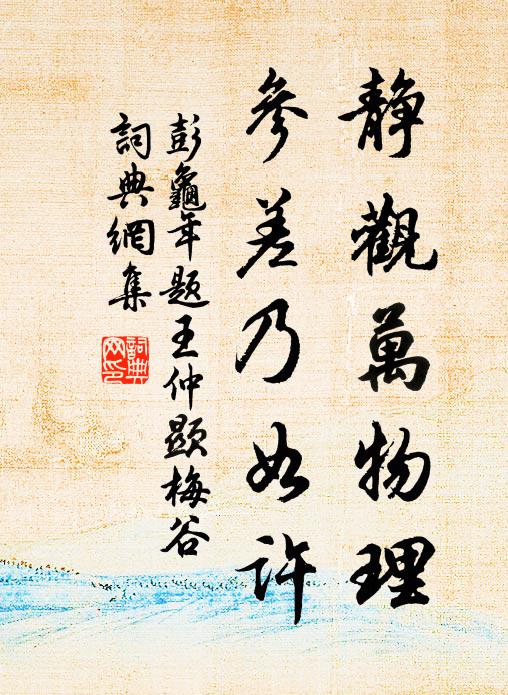 静觀萬物理
參差乃如許
彭龜年題王仲顕梅谷
詞典網集
詞典
网印